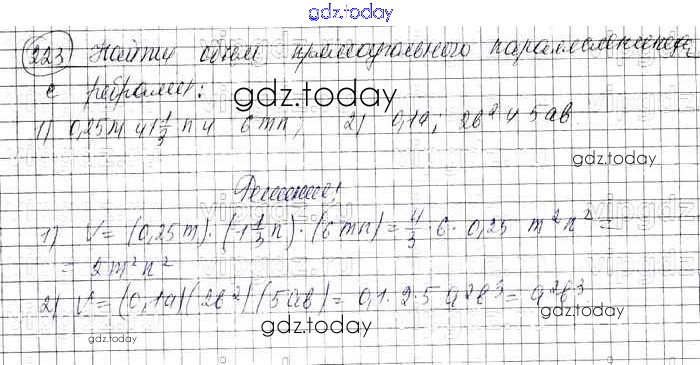 gdz.today
223 Найти объем прямоугольного параллелепипеда
с ребрами:
gdz.today
1) 0,25m; 1 1/3 n и 6mn; 2) 0,1a; 2b² и 5ab
gdz.today
Решение:
1) V = (0,25m) · (1 1/3 n) · (6mn) = 4/3 · 6 · 0,25 m²n² =
= 2m²n²
2) V = (0,1a)(2b²)(5ab) = 0,1 · 2 · 5 a²b³ = a²b³
gdz.today
gdz.today
gdz.today